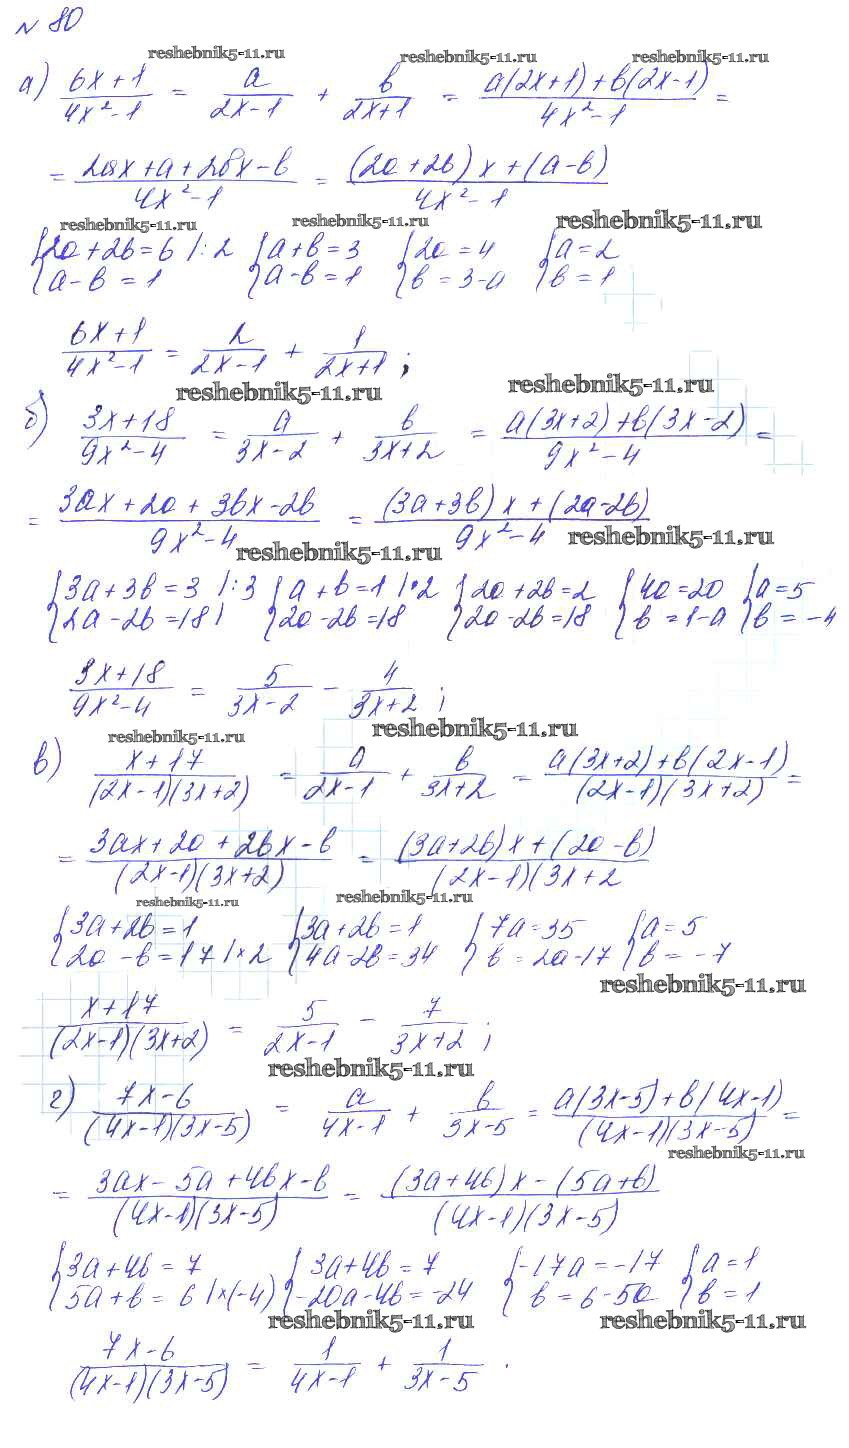 № 80
reshebnik5-11.ru reshebnik5-11.ru reshebnik5-11.ru
а) (6x+1)/(4x²-1) = a/(2x-1) + b/(2x+1) = (a(2x+1)+b(2x-1))/(4x²-1) =
= (2ax+a+2bx-b)/(4x²-1) = ((2a+2b)x+(a-b))/(4x²-1)
reshebnik5-11.ru reshebnik5-11.ru reshebnik5-11.ru
{2a+2b=6 |:2 {a+b=3 {2a=4 {a=2
{a-b=1 {a-b=1 {b=3-a {b=1
(6x+1)/(4x²-1) = 2/(2x-1) + 1/(2x+1);
reshebnik5-11.ru reshebnik5-11.ru
б) (3x+18)/(9x²-4) = a/(3x-2) + b/(3x+2) = (a(3x+2)+b(3x-2))/(9x²-4) =
= (3ax+2a+3bx-2b)/(9x²-4) = ((3a+3b)x+(2a-2b))/(9x²-4)
reshebnik5-11.ru reshebnik5-11.ru
{3a+3b=3 |:3 {a+b=1 |·2 {2a+2b=2 {4a=20 {a=5
{2a-2b=18 | {2a-2b=18 {2a-2b=18 {b=1-a {b=-4
(3x+18)/(9x²-4) = 5/(3x-2) - 4/(3x+2);
reshebnik5-11.ru reshebnik5-11.ru
в) (x+17)/((2x-1)(3x+2)) = a/(2x-1) + b/(3x+2) = (a(3x+2)+b(2x-1))/((2x-1)(3x+2)) =
= (3ax+2a+2bx-b)/((2x-1)(3x+2)) = ((3a+2b)x+(2a-b))/((2x-1)(3x+2
reshebnik5-11.ru reshebnik5-11.ru
{3a+2b=1 {3a+2b=1 {7a=35 {a=5
{2a-b=17 |×2 {4a-2b=34 {b=2a-17 {b=-7
reshebnik5-11.ru
(x+17)/((2x-1)(3x+2)) = 5/(2x-1) - 7/(3x+2);
reshebnik5-11.ru
г) (7x-6)/((4x-1)(3x-5)) = a/(4x-1) + b/(3x-5) = (a(3x-5)+b(4x-1))/((4x-1)(3x-5)) =
reshebnik5-11.ru
= (3ax-5a+4bx-b)/((4x-1)(3x-5)) = ((3a+4b)x-(5a+b))/((4x-1)(3x-5))
{3a+4b=7 {3a+4b=7 {-17a=-17 {a=1
{5a+b=6 |×(-4) {-20a-4b=-24 {b=6-5a {b=1
reshebnik5-11.ru reshebnik5-11.ru
(7x-6)/((4x-1)(3x-5)) = 1/(4x-1) + 1/(3x-5).